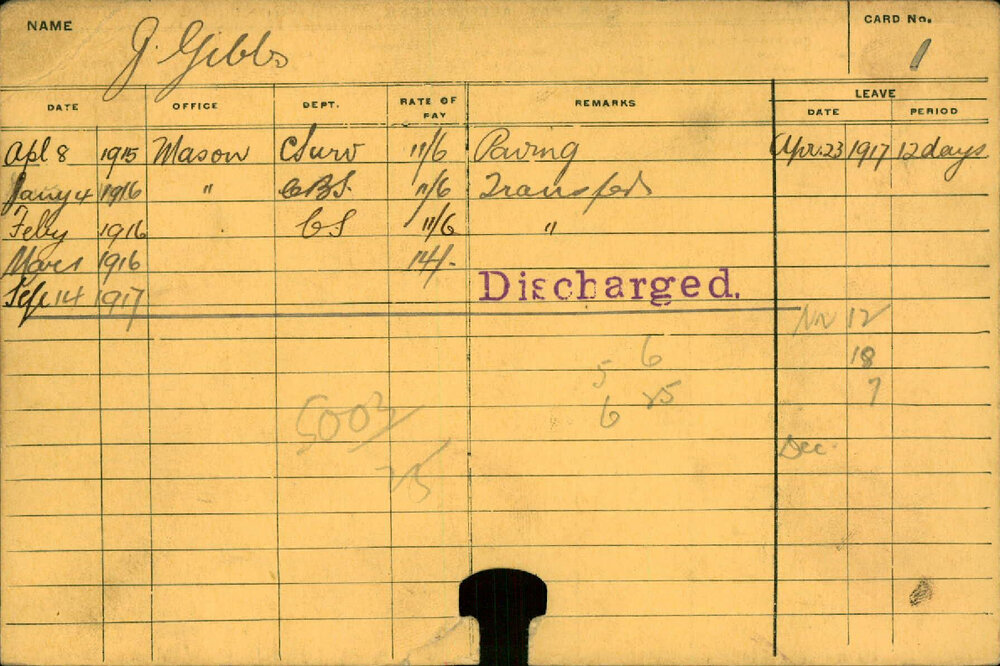 NAME J. Gibbs CARD No. 1
LEAVE
DATE OFFICE DEPT. RATE OF PAY REMARKS DATE PERIOD
Apl 8 1915 Mason CSurv 11/6 Paving Apr. 23 1917 12 days
Jany 4 1916 " CBS. 11/6 Transfd
Feby 1916 CS 11/6 "
Mar 1 1916 14/-
Sep 14 1917 Discharged.
Nov 12
6 18
5 7
25
6
5003/
25
Dec.